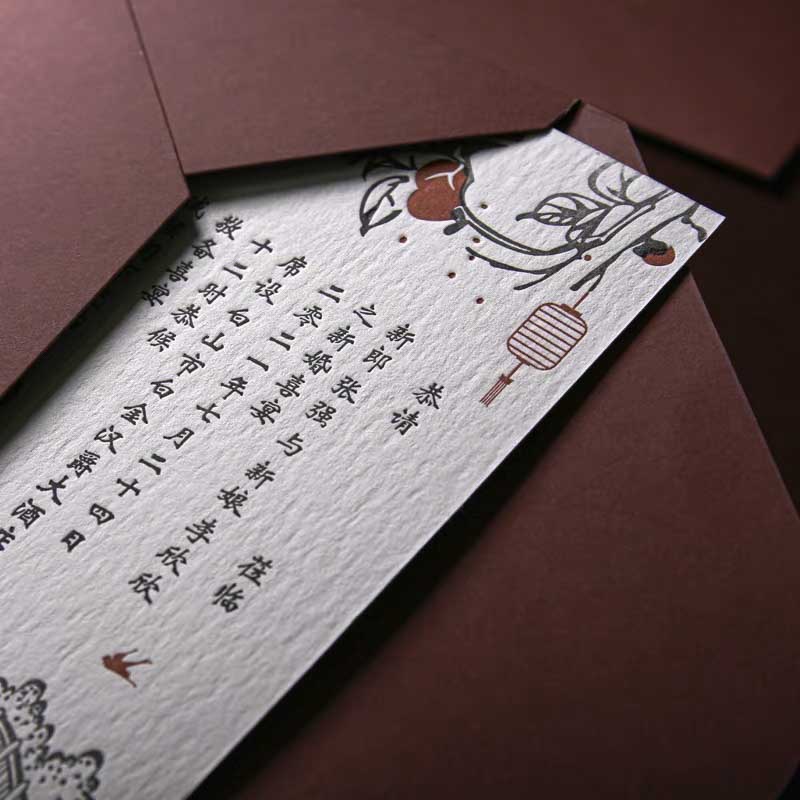 恭请 莅临
新郎张强与新娘李欣欣
之新婚喜宴
二零二一年七月二十四日
席设白山市白金汉爵大酒店
十二时恭候
敬备喜宴